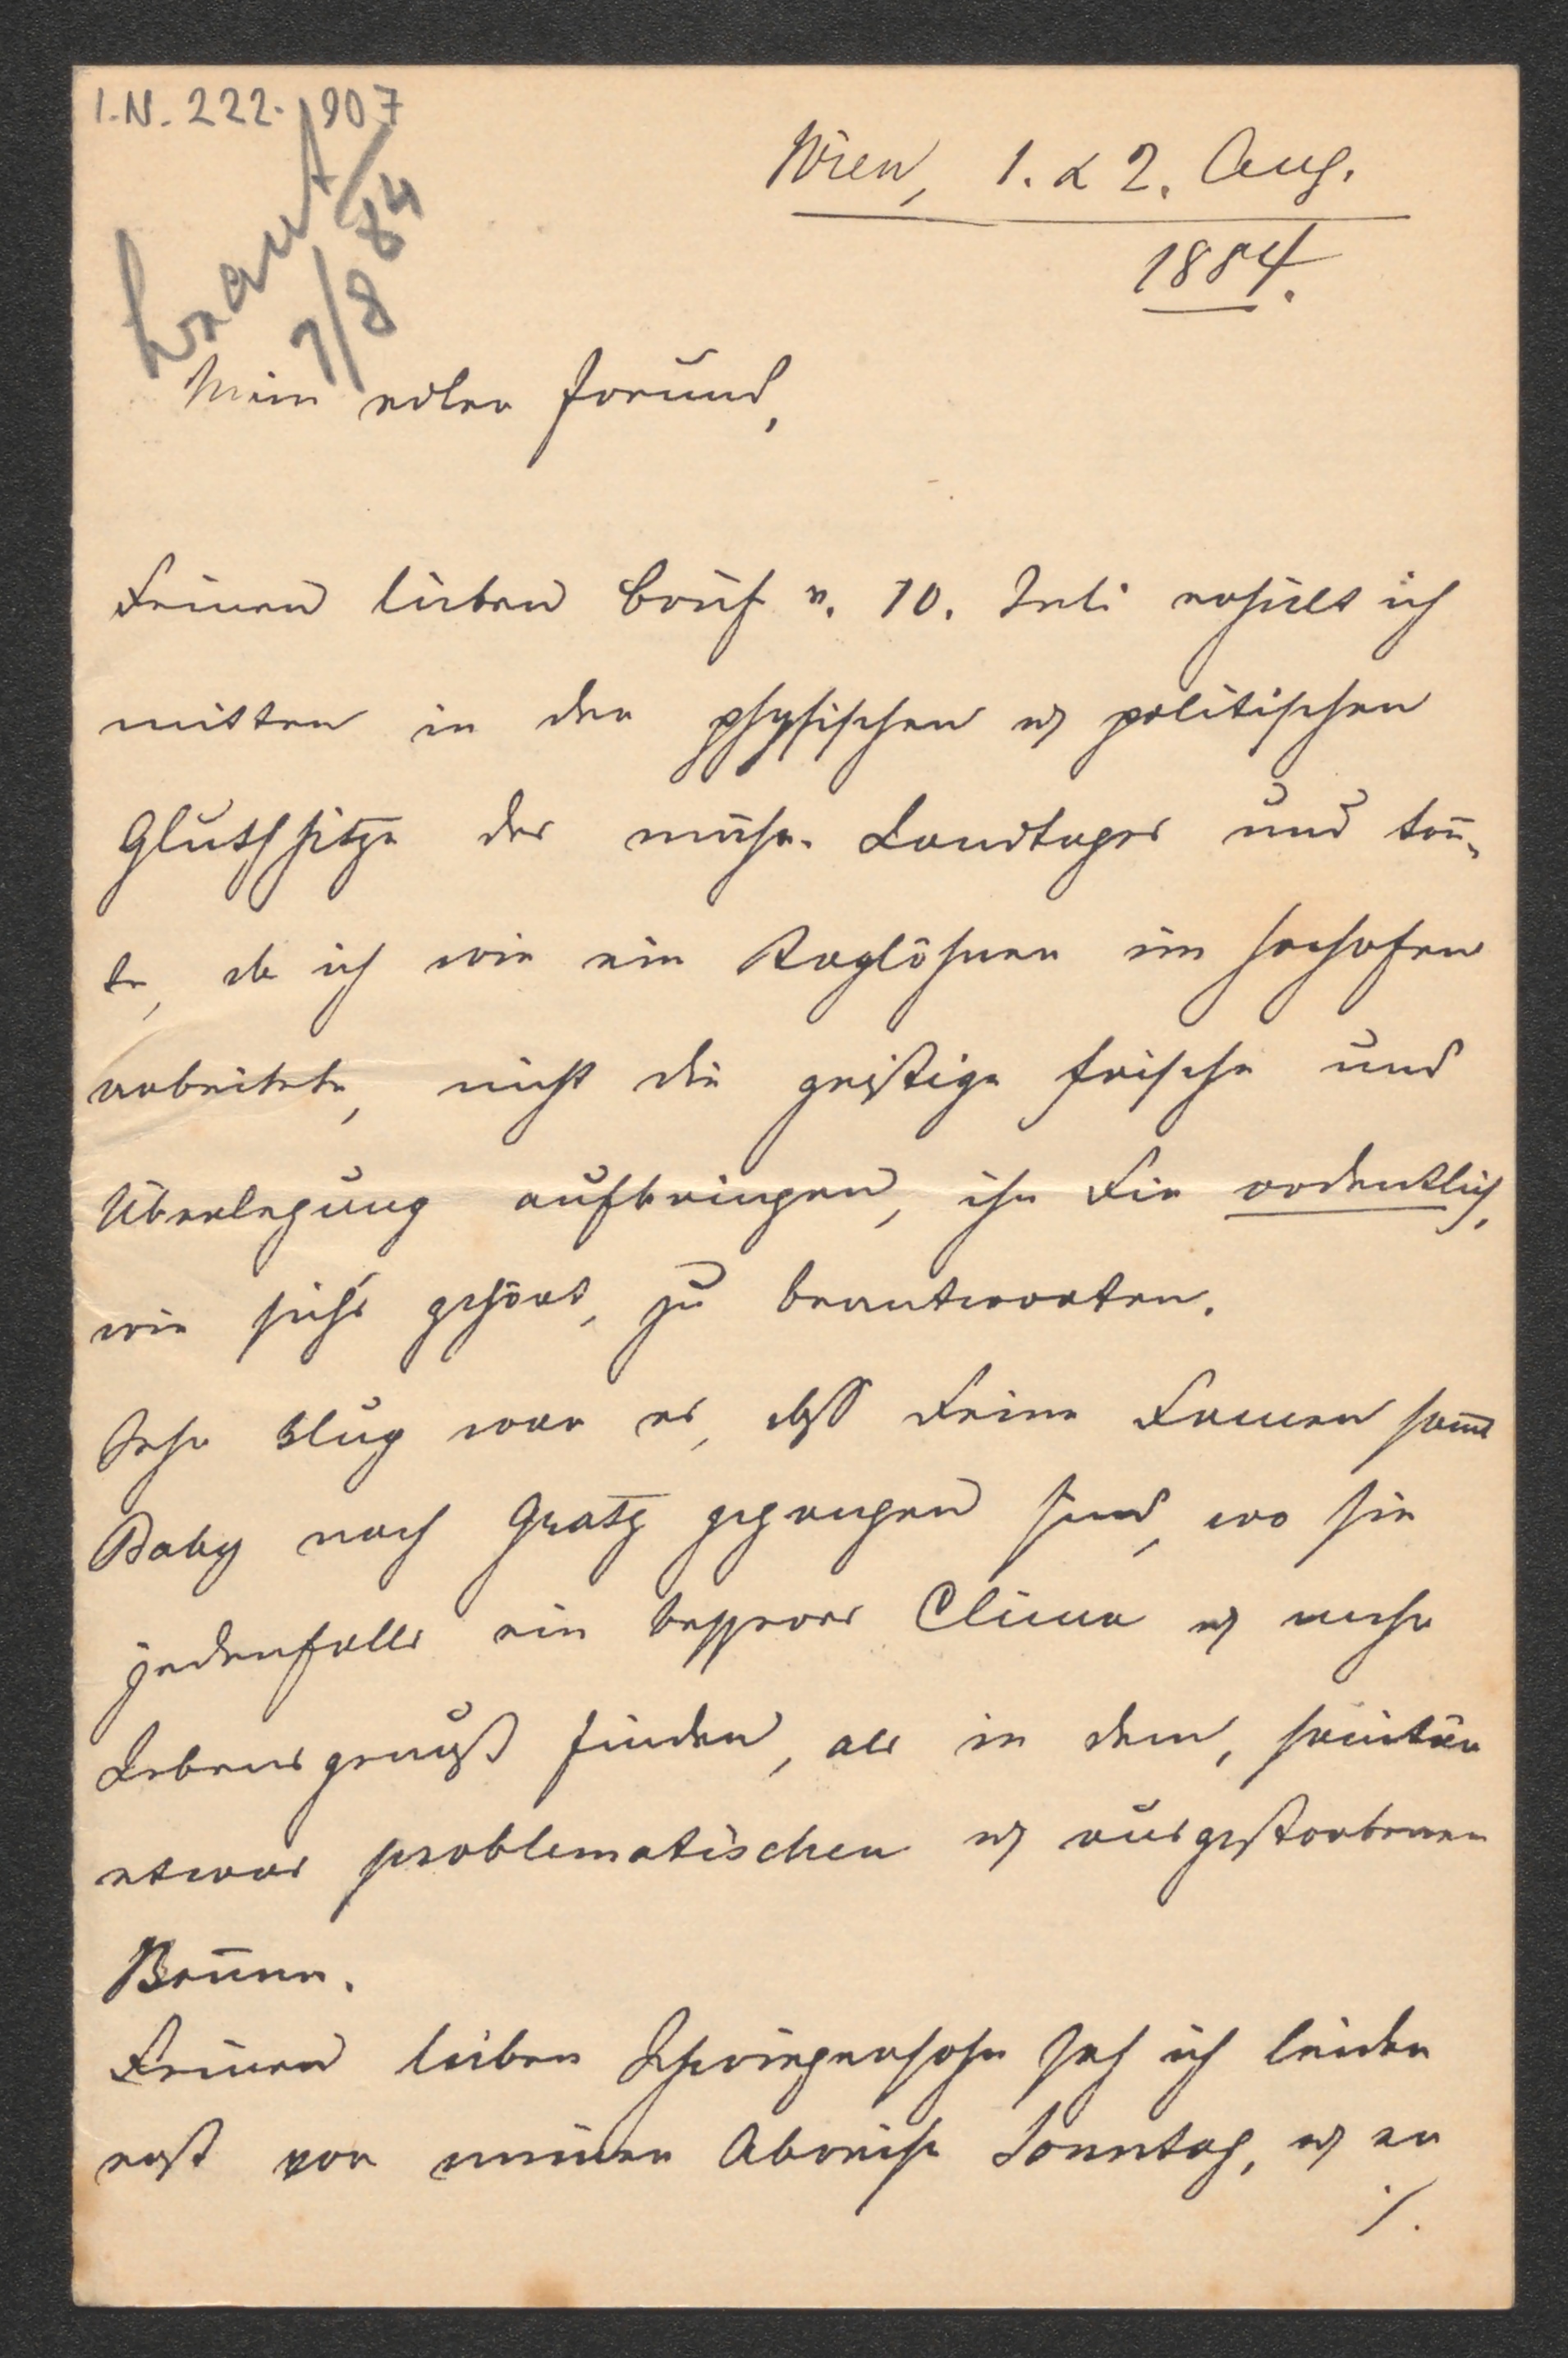 I.N. 222.907
Wien, 1. & 2. Aug.
1884.
7/8 84
Mein edler Freund,
Deinen lieben Brief v. 10. Juli erhielt ich
mitten in der physischen u politischen
Gluthhitze des mähr. Landtages und kon̄-
te, da ich wie ein Taglöhner im Hochofen
arbeitete, nicht die geistige Frische und
Überlegung aufbringen, ihn Dir ordentlich,
wie sich's gehört, zu beantworten.
Sehr klug war es, daß Deine Damen sam̄t
Baby nach Gratz gegangen sind, wo sie
jedenfalls ein besseres Clima u mehr
Lebensgenuß finden, als in dem, sanitär
etwas problematischen u ausgestorbenen
Brünn.
Deinen lieben Schwiegersohn sah ich leider
erst vor meiner Abreise Sonntag, u er
./.